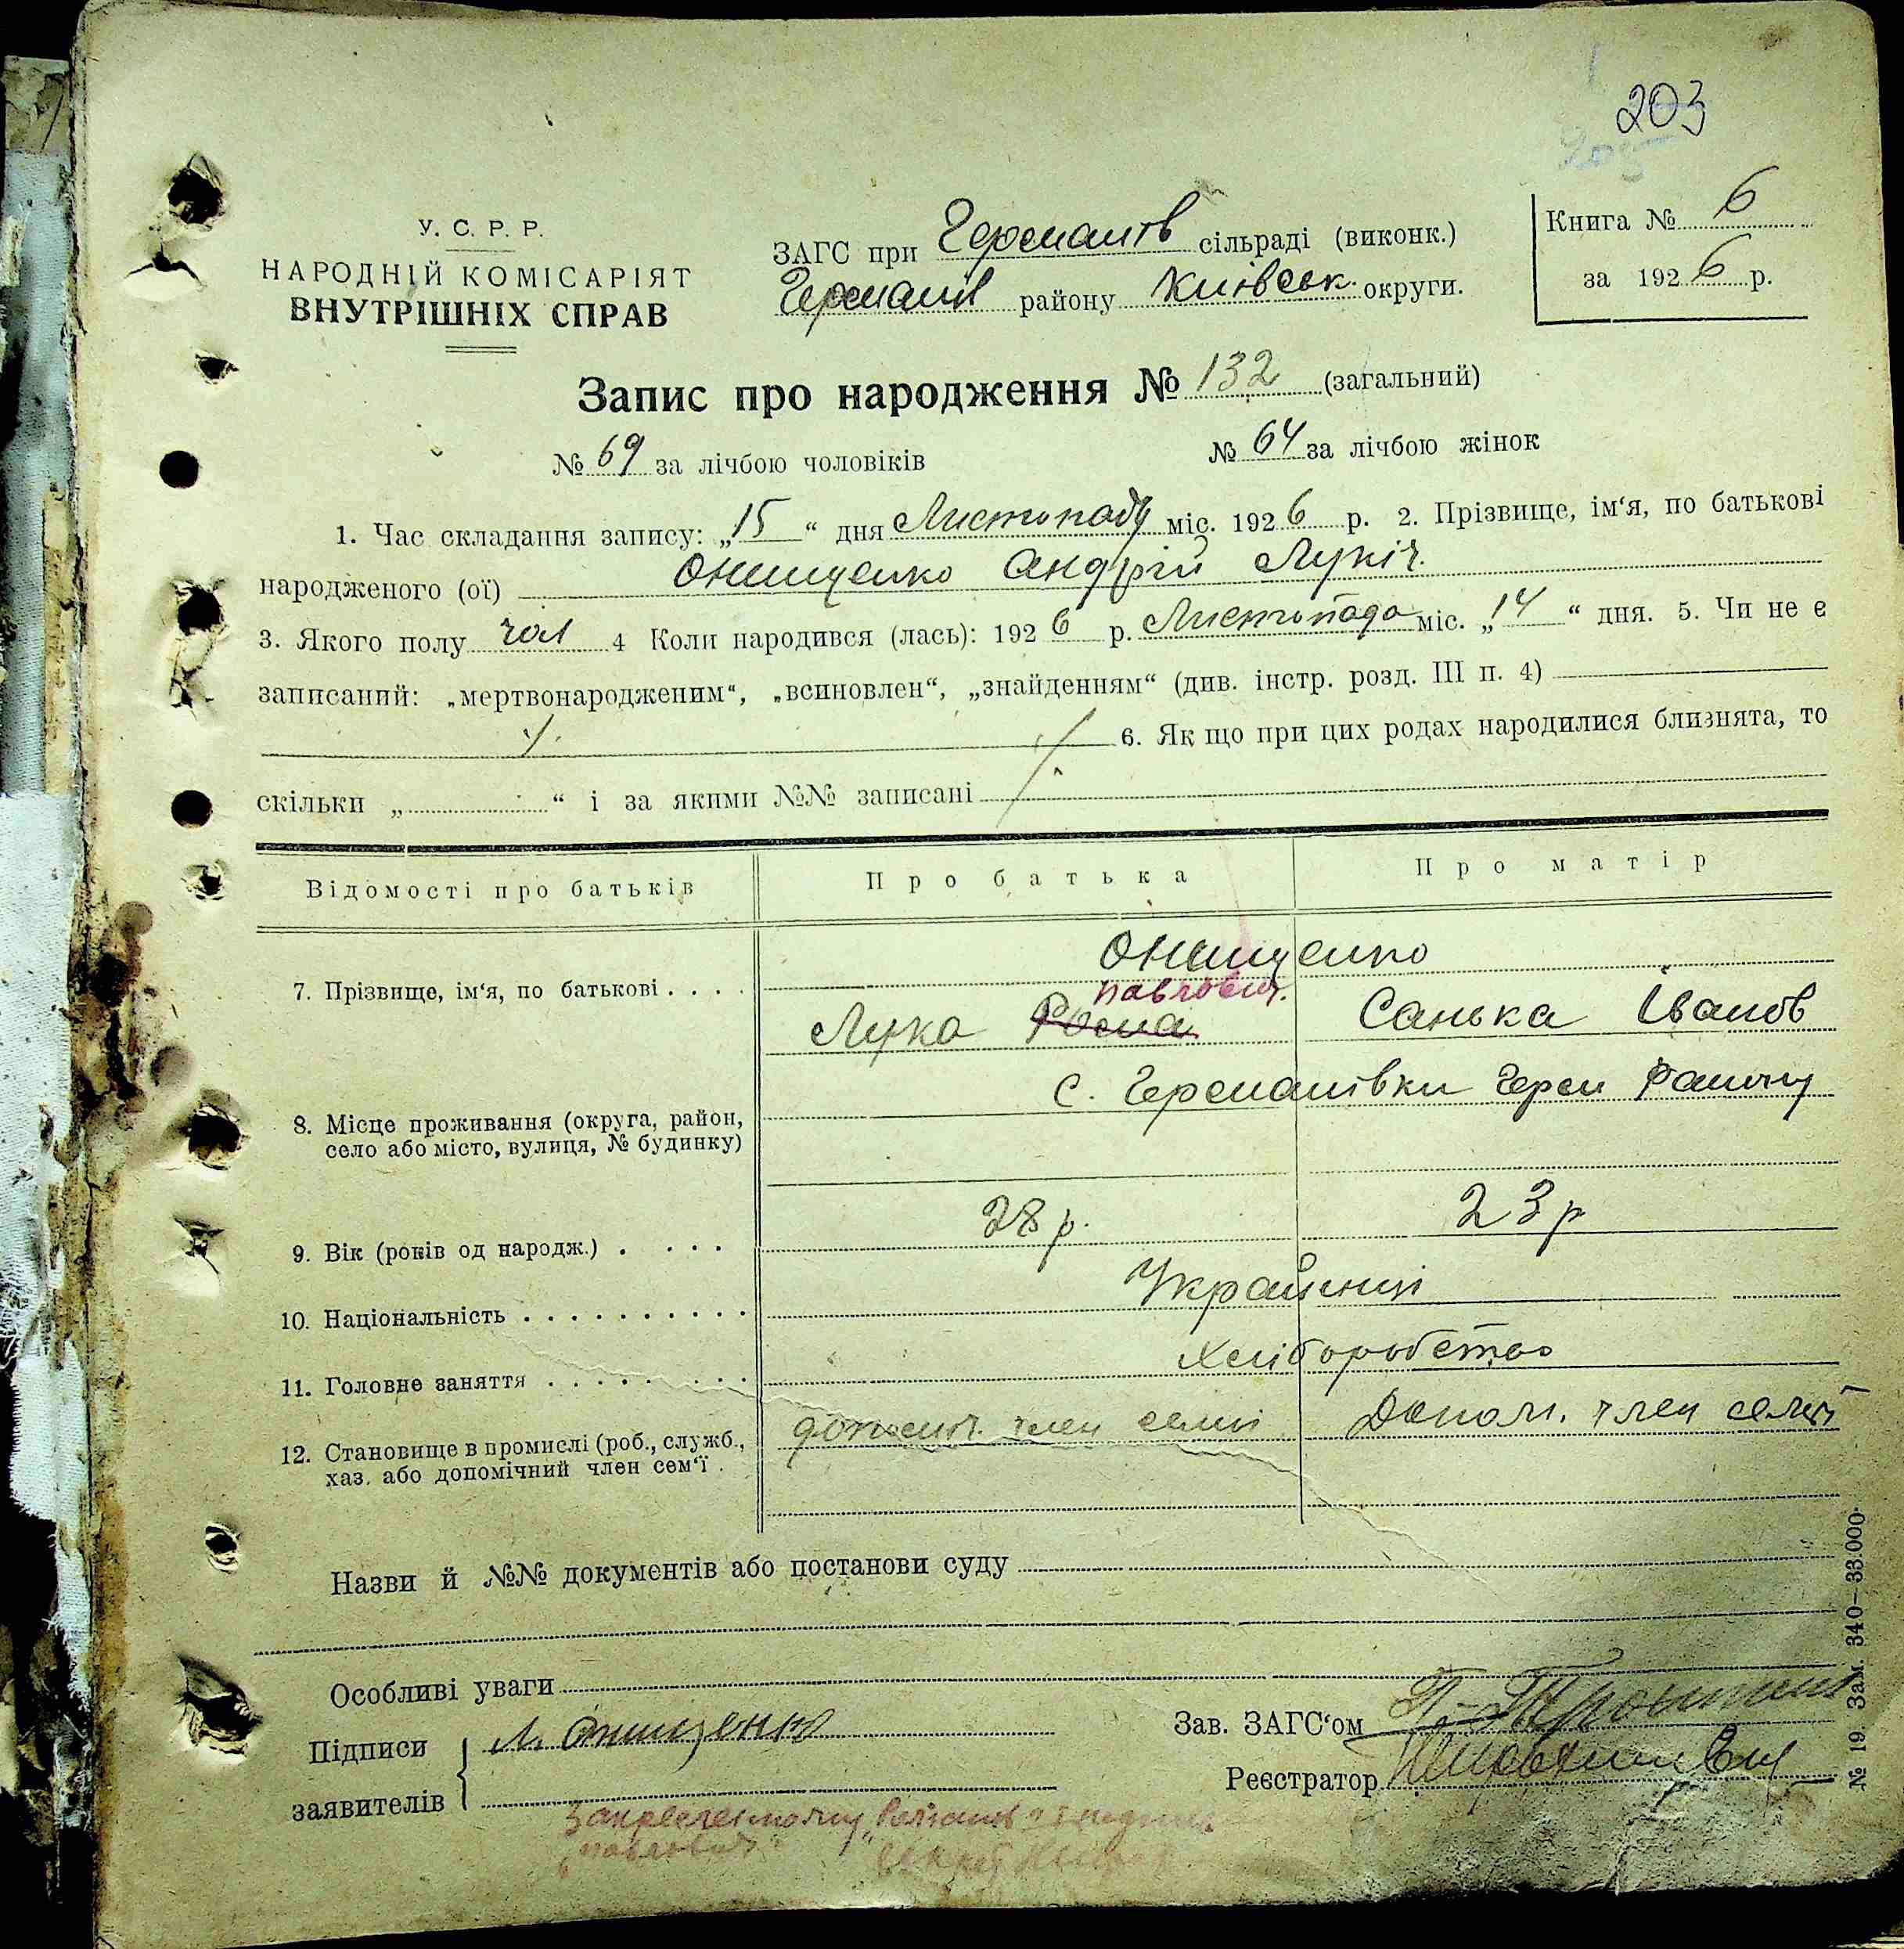 203
У. С. Р. Р.
НАРОДНІЙ КОМІСАРІЯТ
ВНУТРІШНІХ СПРАВ
ЗАГС при Германів сільраді (виконк.)
Германів району Київськ. округи.
Книга № 6
за 1926 р.
Запис про народження № 132 (загальний)
№ 69 за лічбою чоловіків № 64 за лічбою жінок
1. Час складання запису: „15“ дня Листопаду міс. 1926 р. 2. Прізвище, ім‘я, по батькові
народженого (ої) Онищенко Андрій Лукіч.
3. Якого полу чол 4 Коли народився (лась): 1926 р. Листопада міс. „14“ дня. 5. Чи не є
записаний: „мертвонародженим“, „всиновлен“, „знайденням“ (див. інстр. розд. III п. 4)
6. Як що при цих родах народилися близнята, то
скільки „ “ і за якими №№ записані
Відомості про батьків Про батька Про матір
Онищенко
7. Прізвище, ім‘я, по батькові . . . .
Павлович.
Лука Санька Іванов
с. Германівки Герм Району
8. Місце проживання (округа, район,
село або місто, вулиця, № будинку)
9. Вік (років од народж.) . . . . 28 р. 23 р
10. Національність . . . . . . . . . . Українці
11. Головне заняття . . . . . . . . . Хліборобство
12. Становище в промислі (роб., служб., допоміч. член семьі Допом. член семьї
хаз. або допомічний член сем‘ї .
Назви й №№ документів або постанови суду
Особливі уваги
Підписи Л. Онищенко Зав. ЗАГС‘ом
заявителів Реєстратор
„Павлович“
№ 19 Зам. 340—33.000